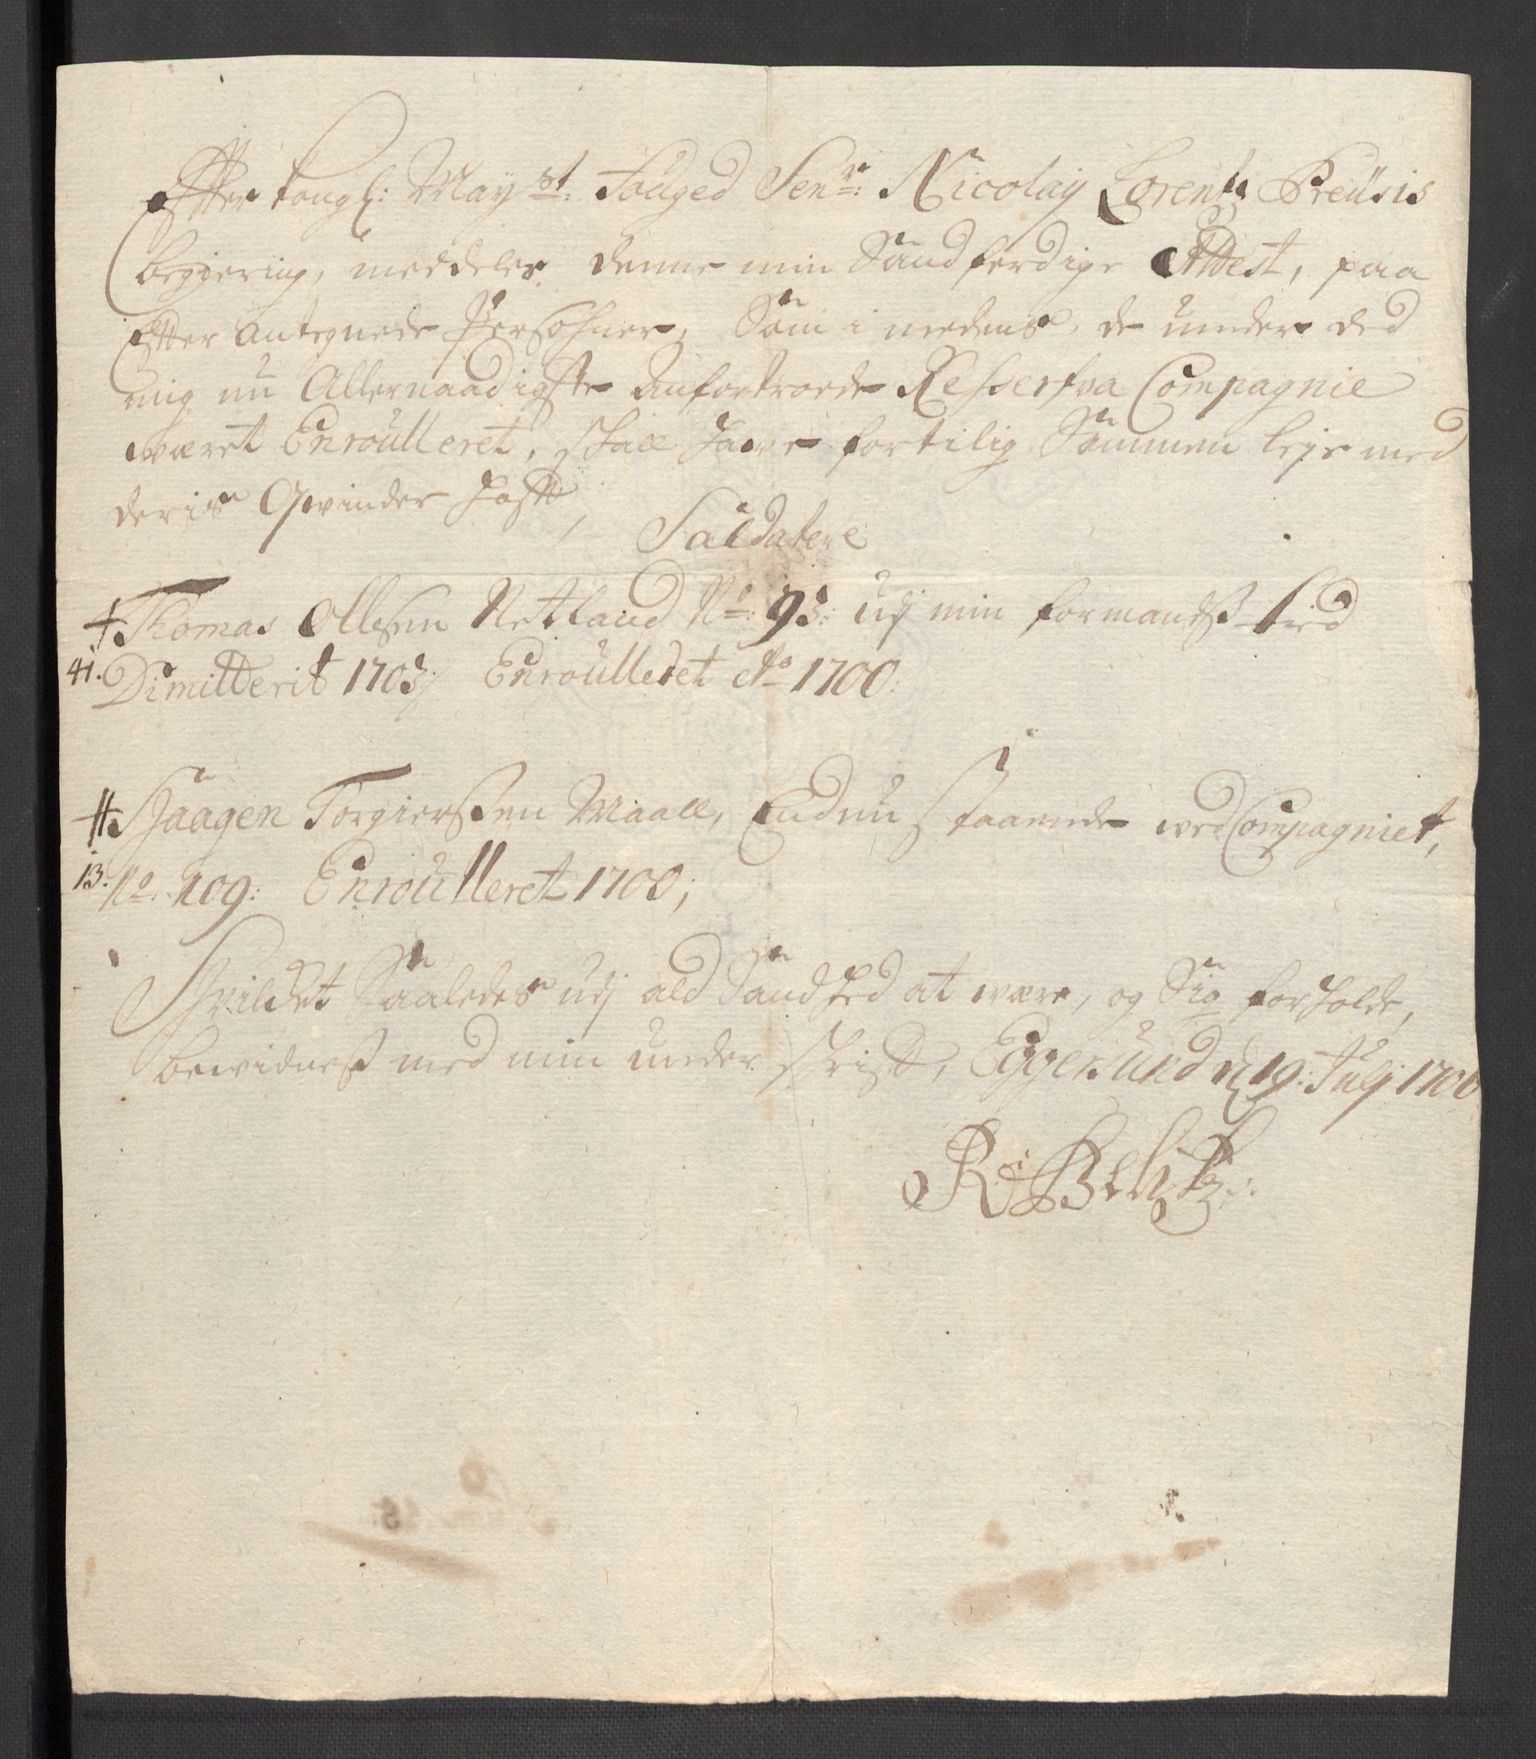 Efter kongl: May.st: Fouged Sen.r: Nicolaij Lorentz Preüsis
begiering, meddeles denne min Sandferdige Attest, paa
Efter antegnede Persohner, Som i medens de under ded
mig nu Allernaadigste anfortroede Reserfva Compagnie
wæret Enroulleret, skall hawe fortilig Sammen leje med
deris Qvinder hafft,
Saldatere
Thomas Ollsen Netland No: 93: udj min formands tid
41. Dimitterit 1703; Enroulleret Ao 1700:
Haagen Torgiersen Maall, Endnu staaende wed Compagniet,
13: No. 109: Enroulleret 1700;
Hvilcket Saaledes udj ald Sandhed at wære, og Sig forholde,
bewidnes med min underskrifft, Eggersund d 19: Julj 1706
R: Beltz